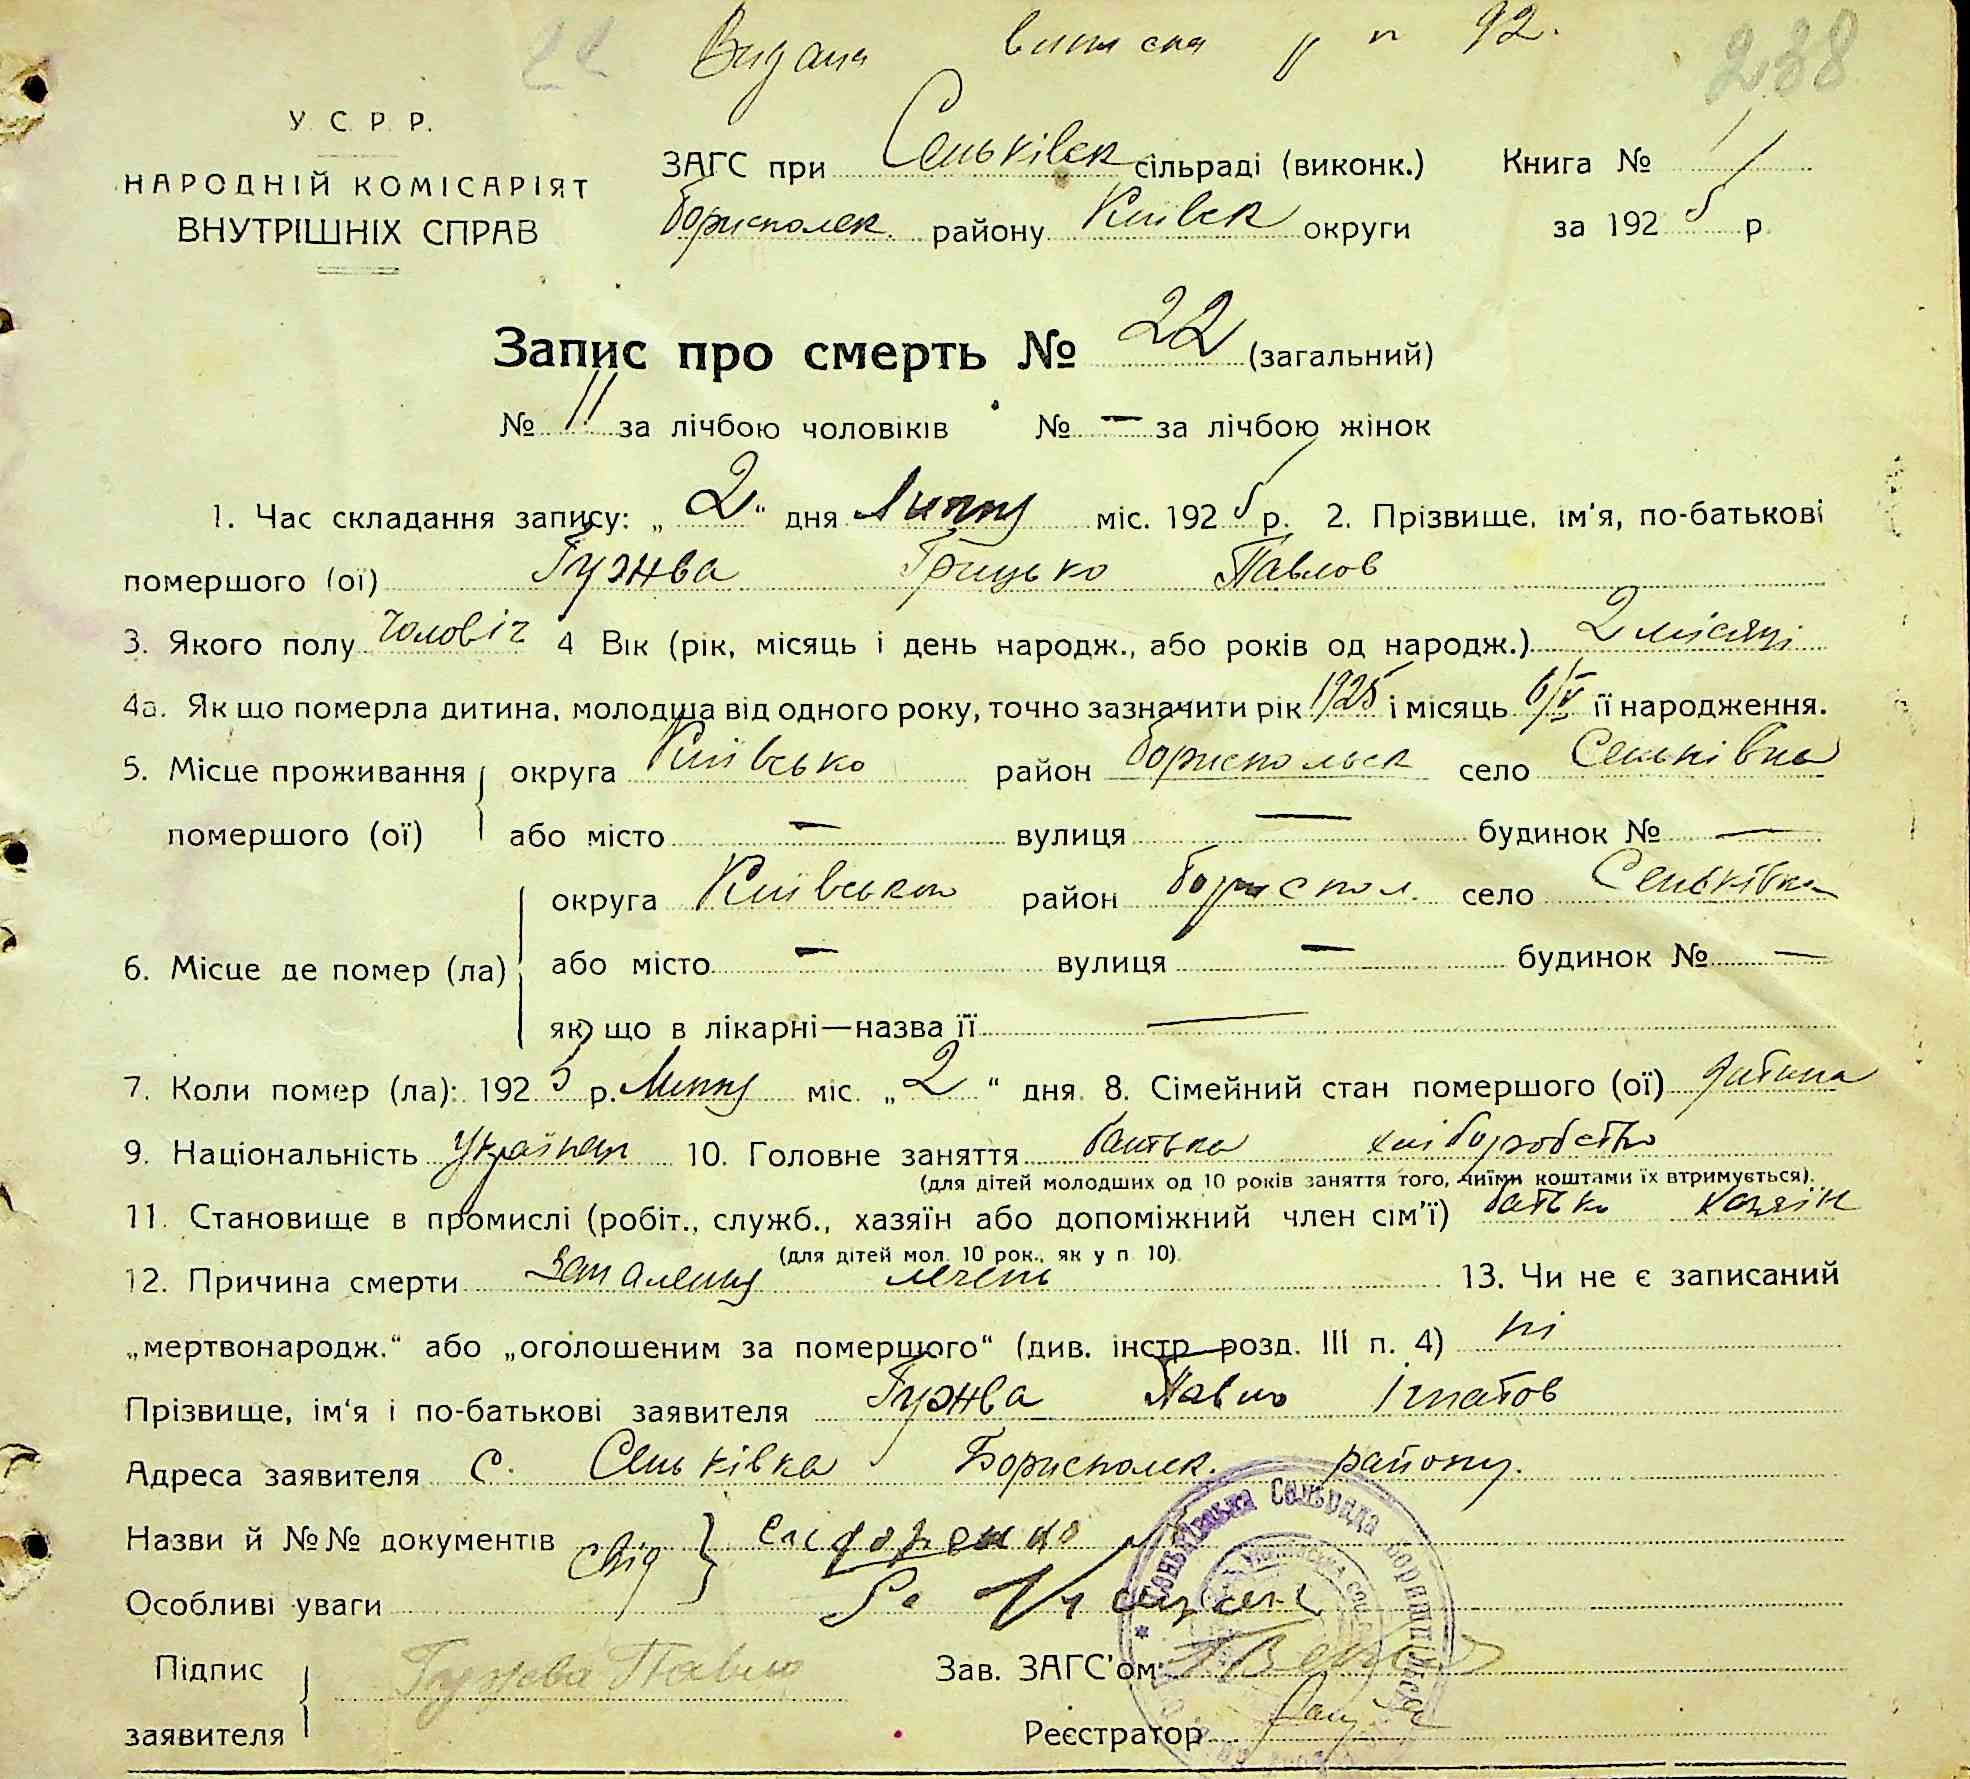 Видана виписка № 92.
238
У. С. Р. Р.
НАРОДНІЙ КОМІСАРІЯТ
ВНУТРІШНІХ СПРАВ
ЗАГС при Сеньківск сільраді (виконк.) Книга № 1
Борисполск. району Київск округи за 1925 р.
Запис про смерть № 22 (загальний)
№ 11 за лічбою чоловіків № — за лічбою жінок
1. Час складання запису: „2“ дня Липня міс. 1925 р. 2. Прізвище, ім'я, по-батькові
помершого (ої) Гужва Грицько Павлов
3. Якого полу чоловіч 4 Вік (рік, місяць і день народж., або років од народж.) 2 місяці
4а. Як що померла дитина, молодша від одного року, точно зазначити рік 1925 і місяць 6/V її народження.
5. Місце проживання округа Київсько район Бориспольск село Сеньківка
помершого (ої) або місто — вулиця — будинок № —
округа Київською район Бориспол. село Сеньківка
6. Місце де помер (ла) або місто — вулиця — будинок № —
як що в лікарні—назва її —
7. Коли помер (ла): 1925 р. Липня міс. „2“ дня. 8. Сімейний стан помершого (ої) дитина
9. Національність Українец 10. Головне заняття батька хліборобство
(для дітей молодших од 10 років заняття того, чиїми коштами їх втримується).
11. Становище в промислі (робіт., служб., хазяїн або допоміжний член сім'ї) батько хазяїн
(для дітей мол. 10 рок., як у п. 10).
12. Причина смерти Запалення легень 13. Чи не є записаний
„мертвонародж.“ або „оголошеним за помершого“ (див. інстр. розд. III п. 4) ні
Прізвище, ім'я і по-батькові заявителя Гужва Павло Ігнатов
Адреса заявителя с. Сеньківка Борисполск. району.
Назви й №№ документів свід } Сидоренко
Особливі уваги
Підпис Гужва Павло Зав. ЗАГС'ом
заявителя Реєстратор